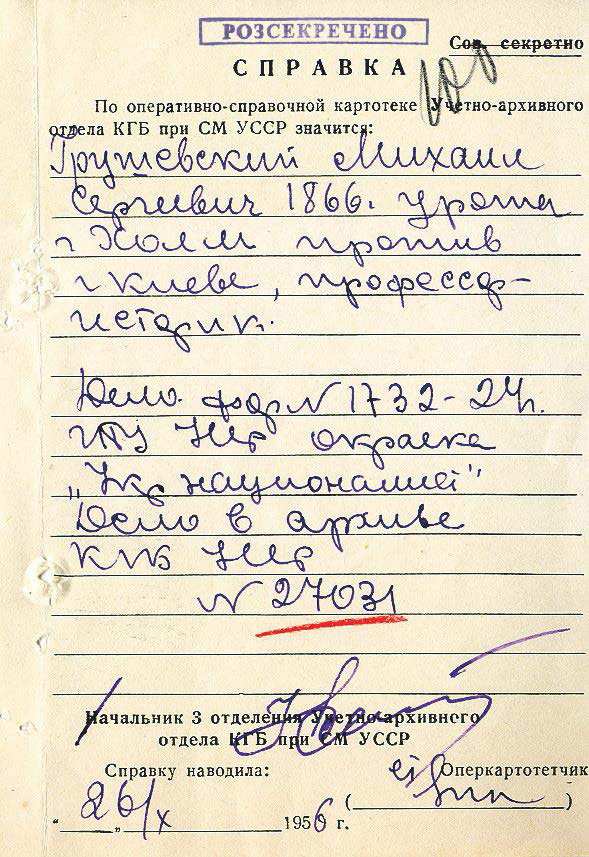 РОЗСЕКРЕЧЕНО
Сов. секретно
СПРАВКА
По оперативно-справочной картотеке Учетно-архивного
отдела КГБ при СМ УССР значится:
Грушевский Михаил
Сергиевич 1866г. урож
г Холм прожив
г Киеве, профессор-
историк.
Дело фор N 1732-24г.
ГПУ УССР окраска
„Укр националист"
Дело в архиве
КГБ УССР
N 27031
Начальник 3 отделения Учетно-архивного
отдела КГБ при СМ УССР
Справку наводила:
Оперкартотетчик
( )
"26/X 1956 г.